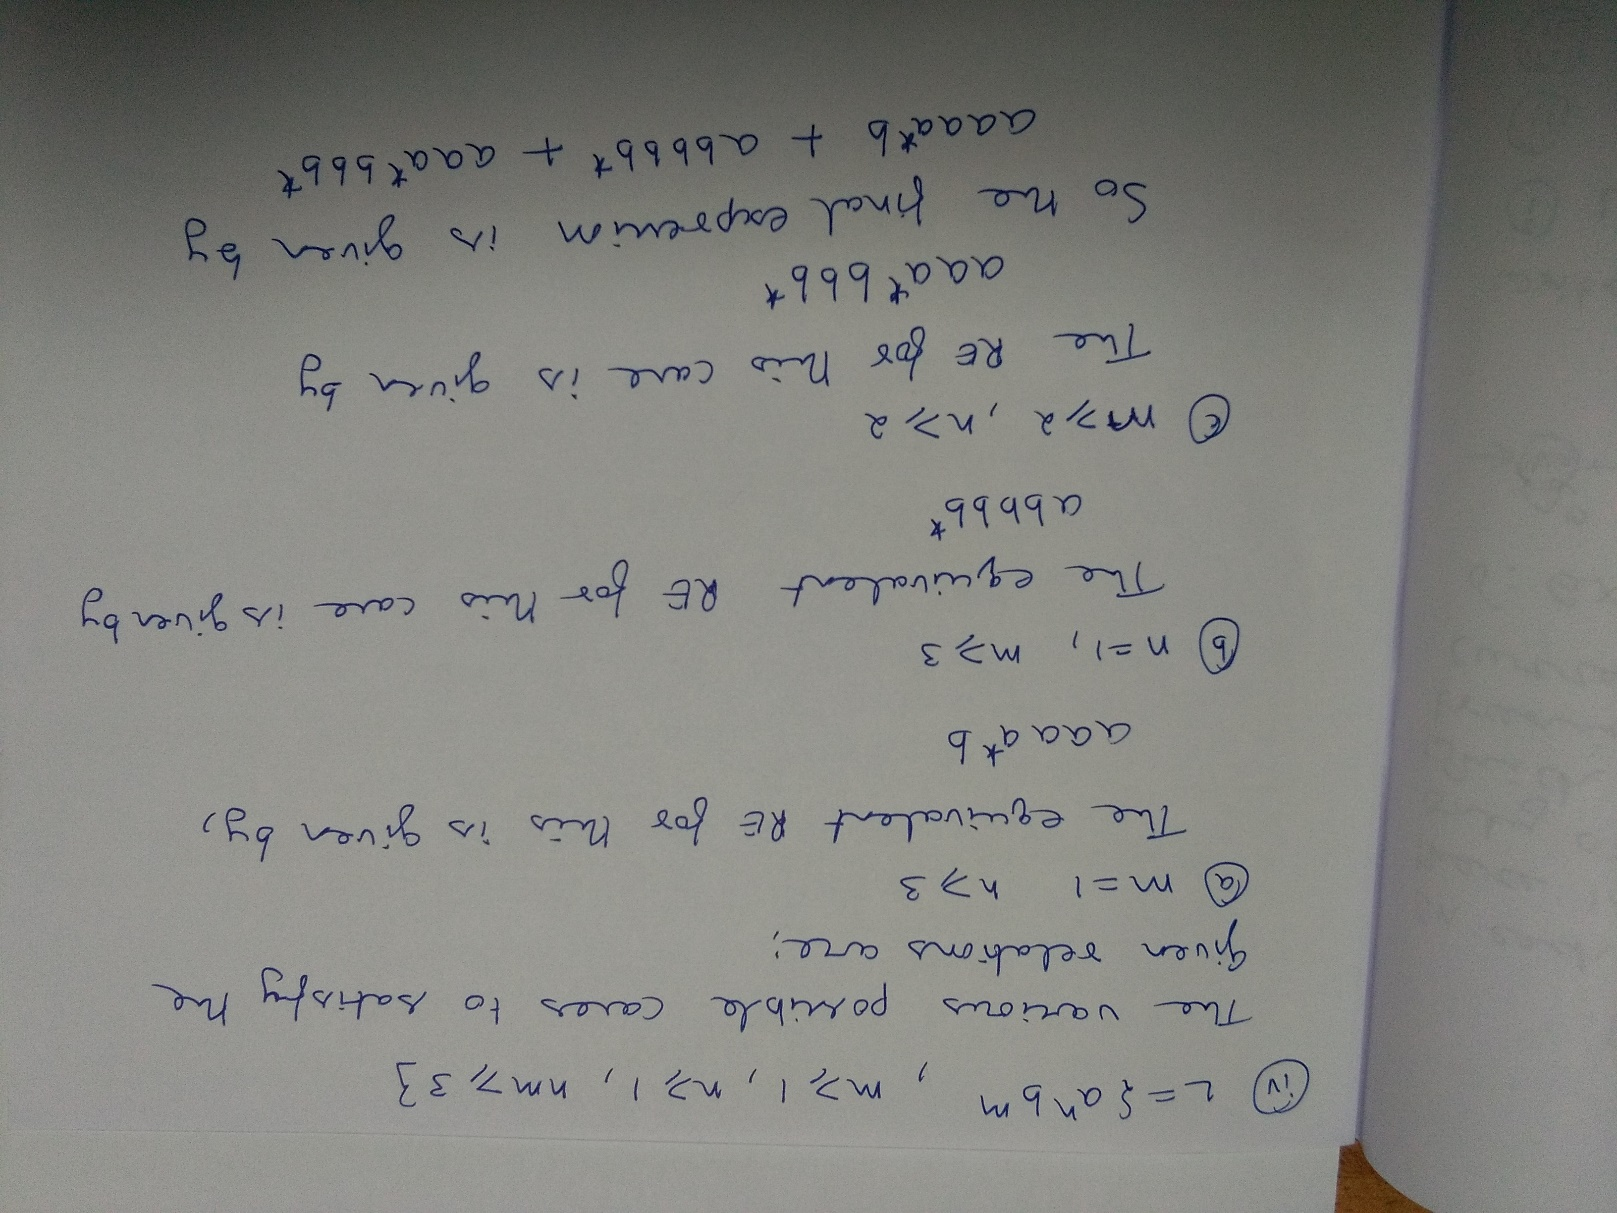 (iv) L = {a^n b^m , m ≥ 1, n ≥ 1, nm ≥ 3}
The various possible cases to satisfy the
given relations are;
(a) m=1 n ≥ 3
The equivalent RE for this is given by,
aaaa*b
(b) n=1, m ≥ 3
The equivalent RE for this case is given by
abbbb*
(c) m ≥ 2, n ≥ 2
The RE for this case is given by
aaa*bbb*
So the final expression is given by
aaaa*b + abbbb* + aaa*bbb*